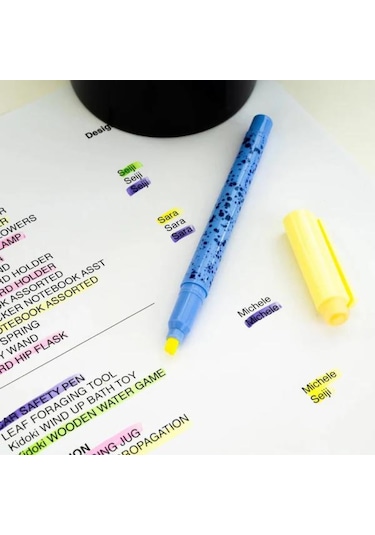 Design
Seiji
Seiji
Seiji
Sara
Sara
Sara
OWERS
AMP
ND
D HOLDER
RD HOLDER
OK ASSORTED
CKER NOTEBOOK ASST
OTEBOOK ASSORTED
SPRING
Y WAND
RD HIP FLASK
Michele
Michele
Michele
Seiji
EAR SAFETY PEN
LEAF FORAGING TOOL
Kidoki WIND UP BATH TOY
Kidoki WOODEN WATER GAME
ION
NING JUG
PROPAGATION